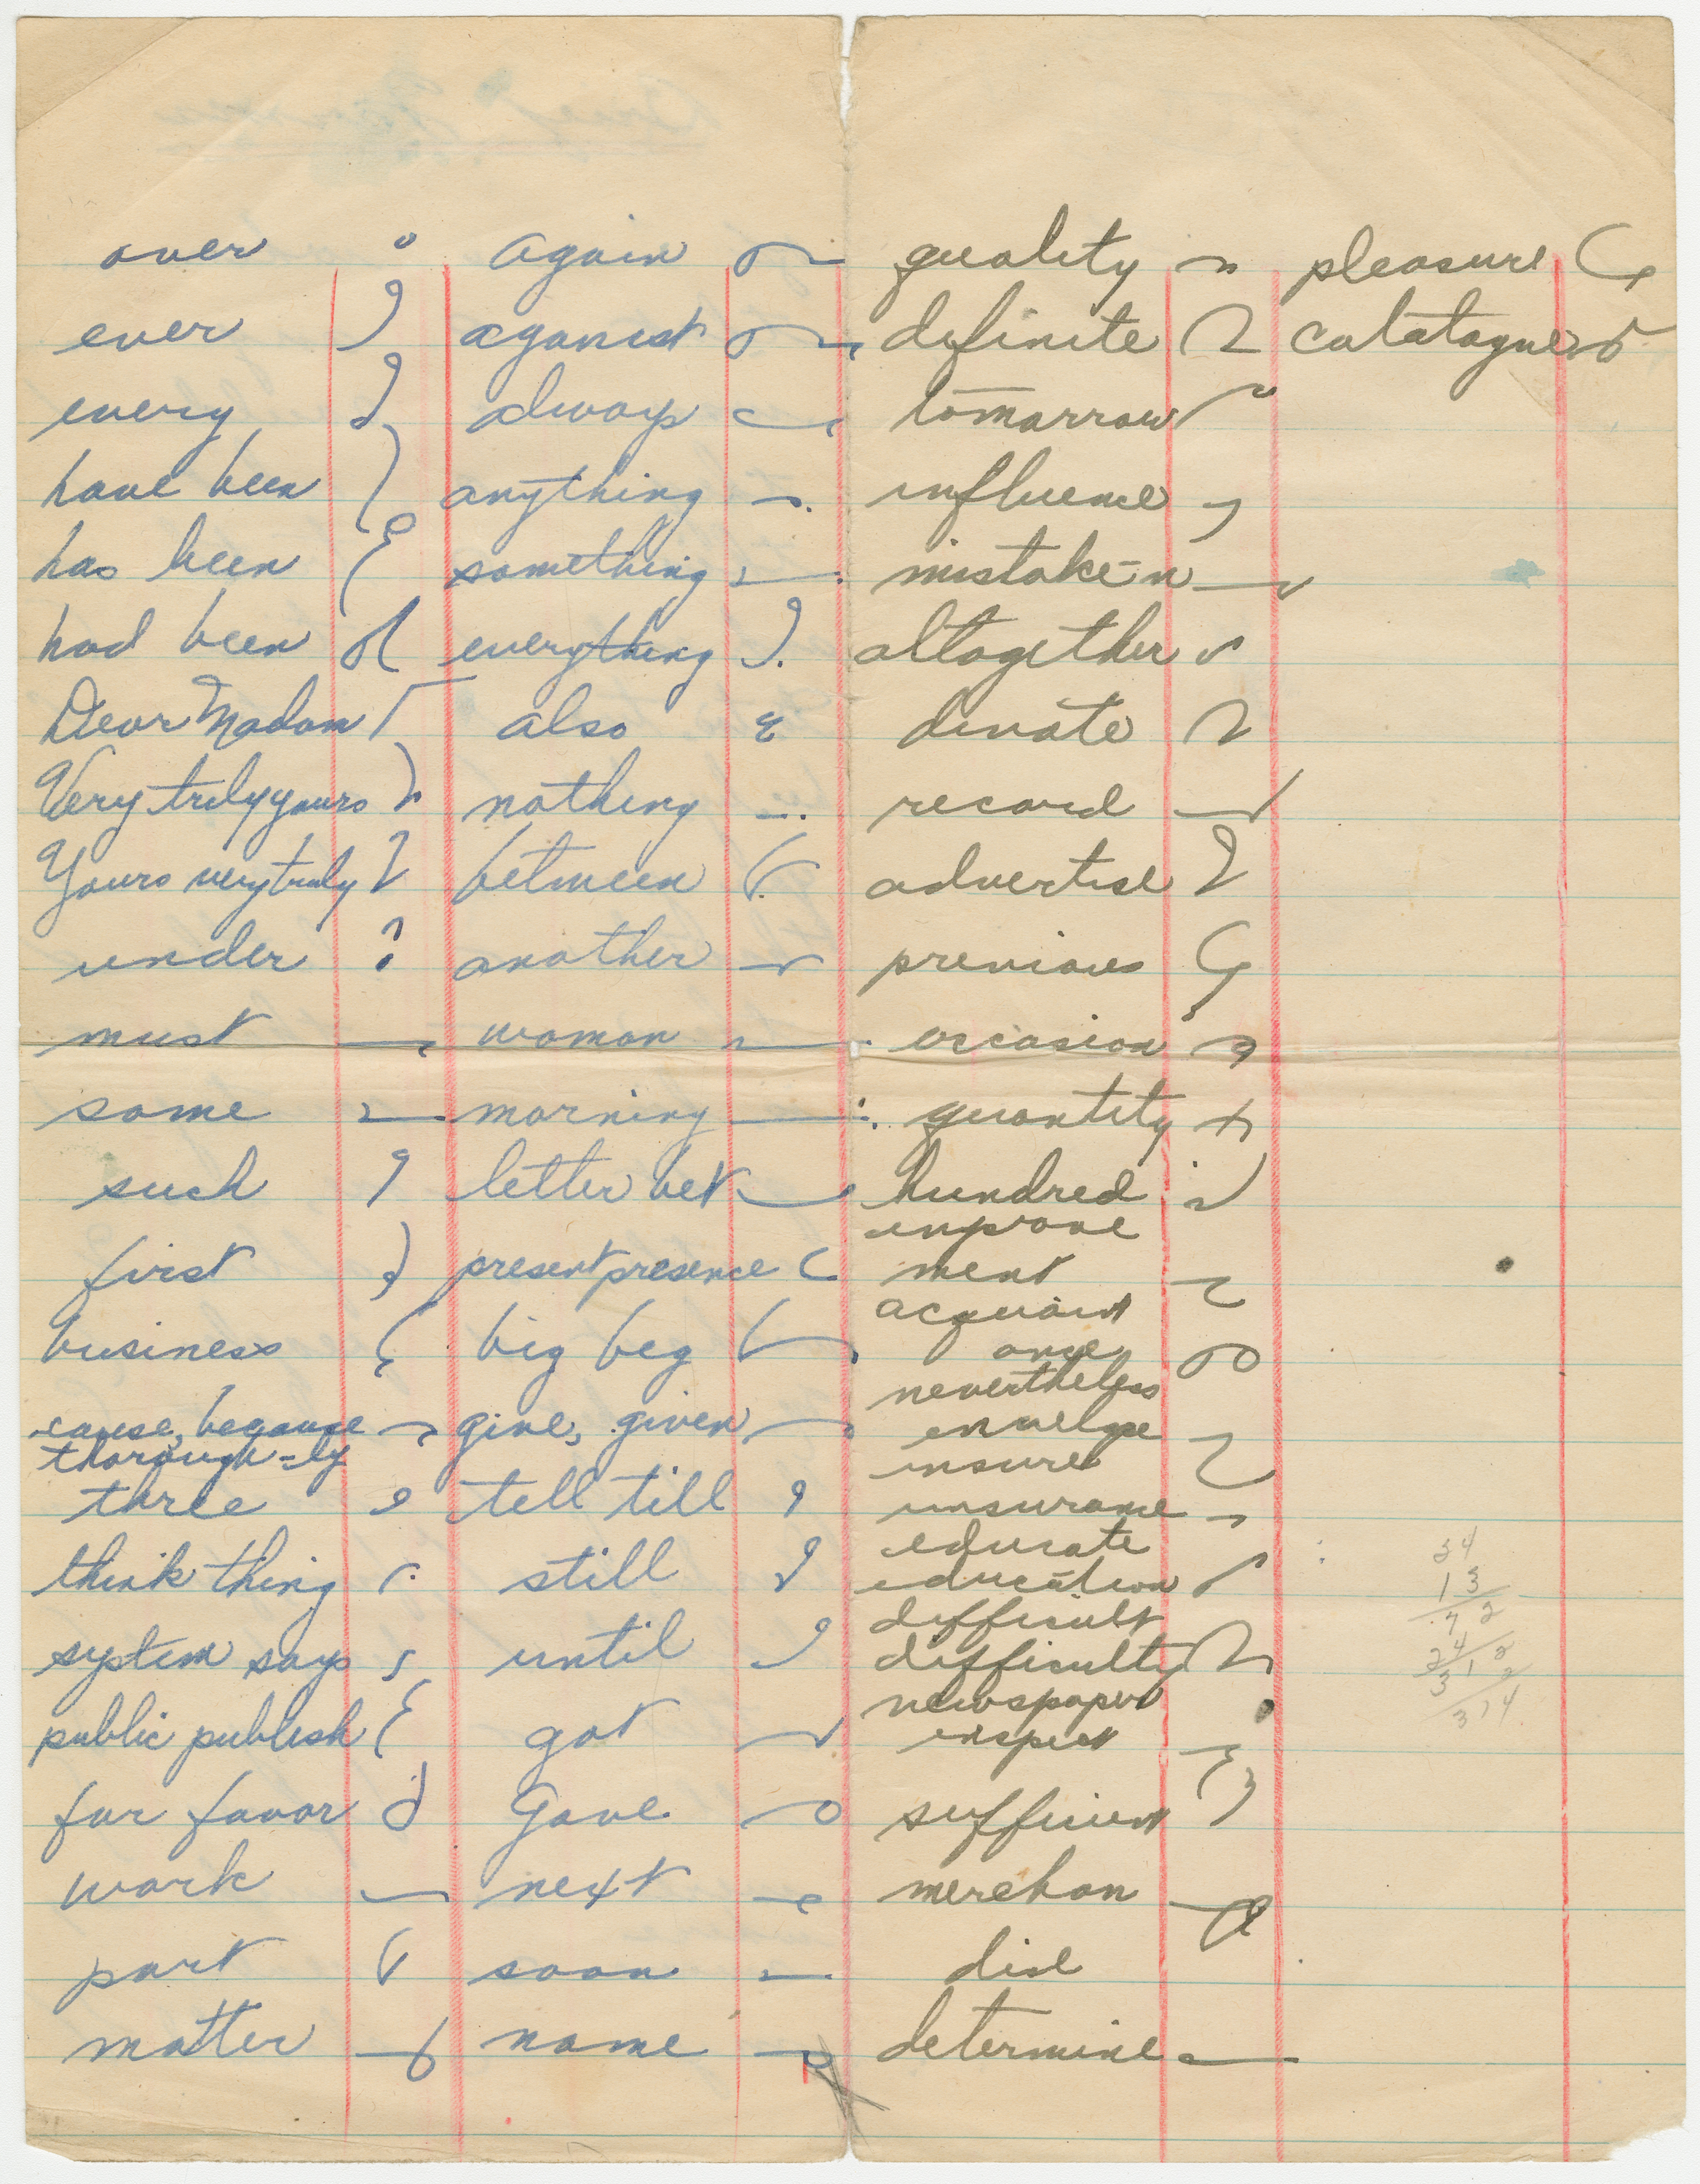 over again quality pleasure
ever aganist definite catatague
every always tomorrow
have been anything influence
has been something mistake-n
had been everything altogether
Dear Madam also
Very truly yours nothing record
Yours very truly between advertise
under another previous
must woman occasion
some morning quantity
such letter let hundred
improve
first present presence ment
acquaint
business big beg ance
nevertheless
cause, because give, given envelope
thorough-ly insure
three tell till insurance
educate
think thing still education
difficult
system says until difficulty
newspaper
public publish got inspect
for favor Gave sufficient
work next merchan
part soon dise
matter name determine
24
13
72
24
312
2
314